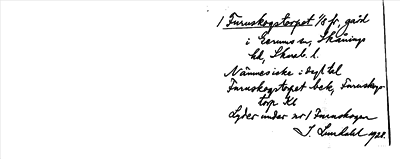 1 Furuskogstorpet 1/8 fr, gård
i Gerums sn, Skånings
hd, Skarab. l.
Männisike i dagl tal
Furuskogstorpet bek, Furuskogs-
torp Kl
Lyder under nr 1 Furuskogen
J. Lundahl 1928.